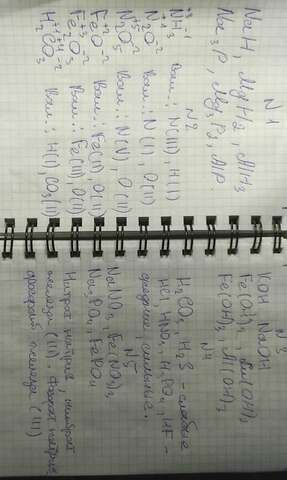 N1
NaH, MgH2, AlH3
Na3P, Mg3P2, AlP
N2
+3 -1
NH3 Вал.: N(III), H(I)
+1 -2
N2O Вал.: N(I), O(II)
+5 -2
N2O5 Вал.: N(V), O(II)
+2 -2
FeO Вал.: Fe(II), O(II)
+3 -2
Fe2O3 Вал.: Fe(III), O(II)
+1 +4 -2
H2CO3 Вал.: H(I), CO3(II)
N3
KOH, NaOH
Fe(OH)2, Zn(OH)2
Fe(OH)3, Al(OH)3
N4
H2CO3, H2S - слабые
HCl, HNO3, H3PO4, HF -
средние, сильные.
N5
NaNO3, Fe(NO3)3
Na3PO4, FePO4
Нитрат натрия, нитрат
железа (III). Фосфат натрия
фосфат железа (III)